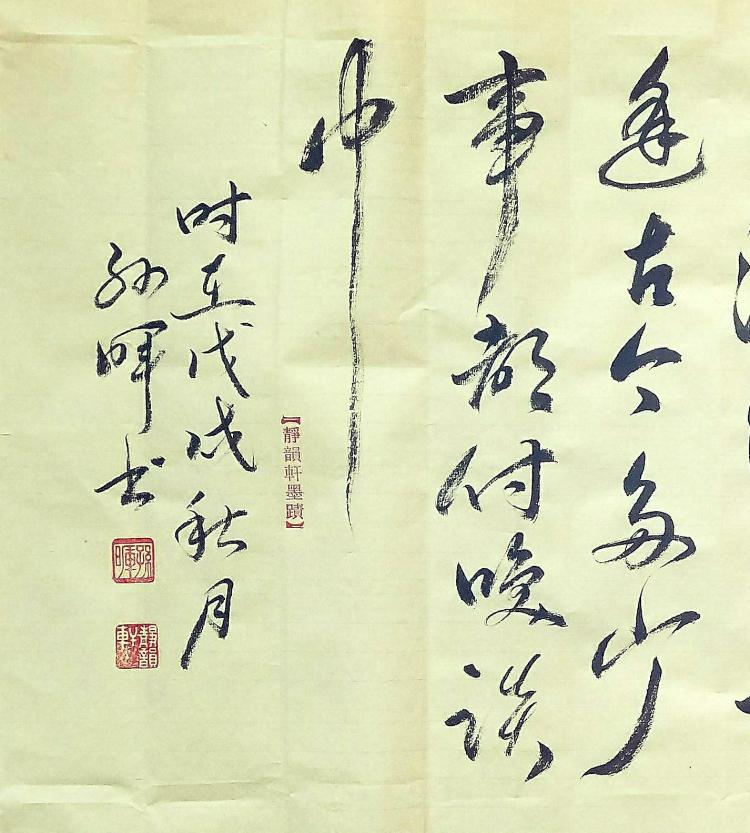 逢古今多少
事都付咲谈
中
【靜韻軒墨蹟】
时在戊戌秋月
孙晖书
孫暉